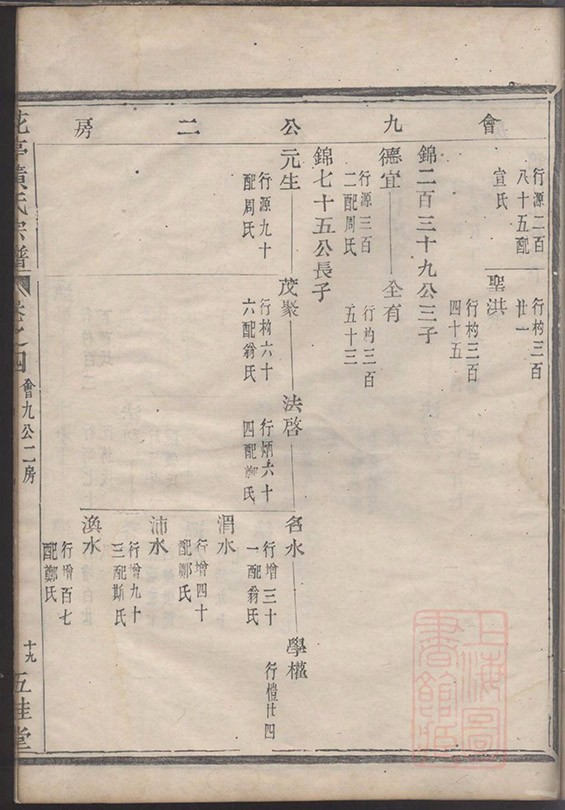 會九公二房
行源二百
八十五配
宣氏
行杓三百
廿一
聖洪
行杓三百
四十五
錦二百三十九公三子
德宜
行源三百
二配周氏
全有
行杓三百
五十三
錦七十五公長子
元生
行源九十
配周氏
茂聚
行杓六十
六配翁氏
法啓
行炳六十
四配鄭氏
名水
行增三十
一配翁氏
學欉
行橙廿四
渭水
行增四十
配鄭氏
沛水
行增九十
三配斯氏
渙水
行增百七
配鄭氏
花亭黃氏宗譜
卷之四
會九公二房
十九
五桂堂
上海圖書館藏